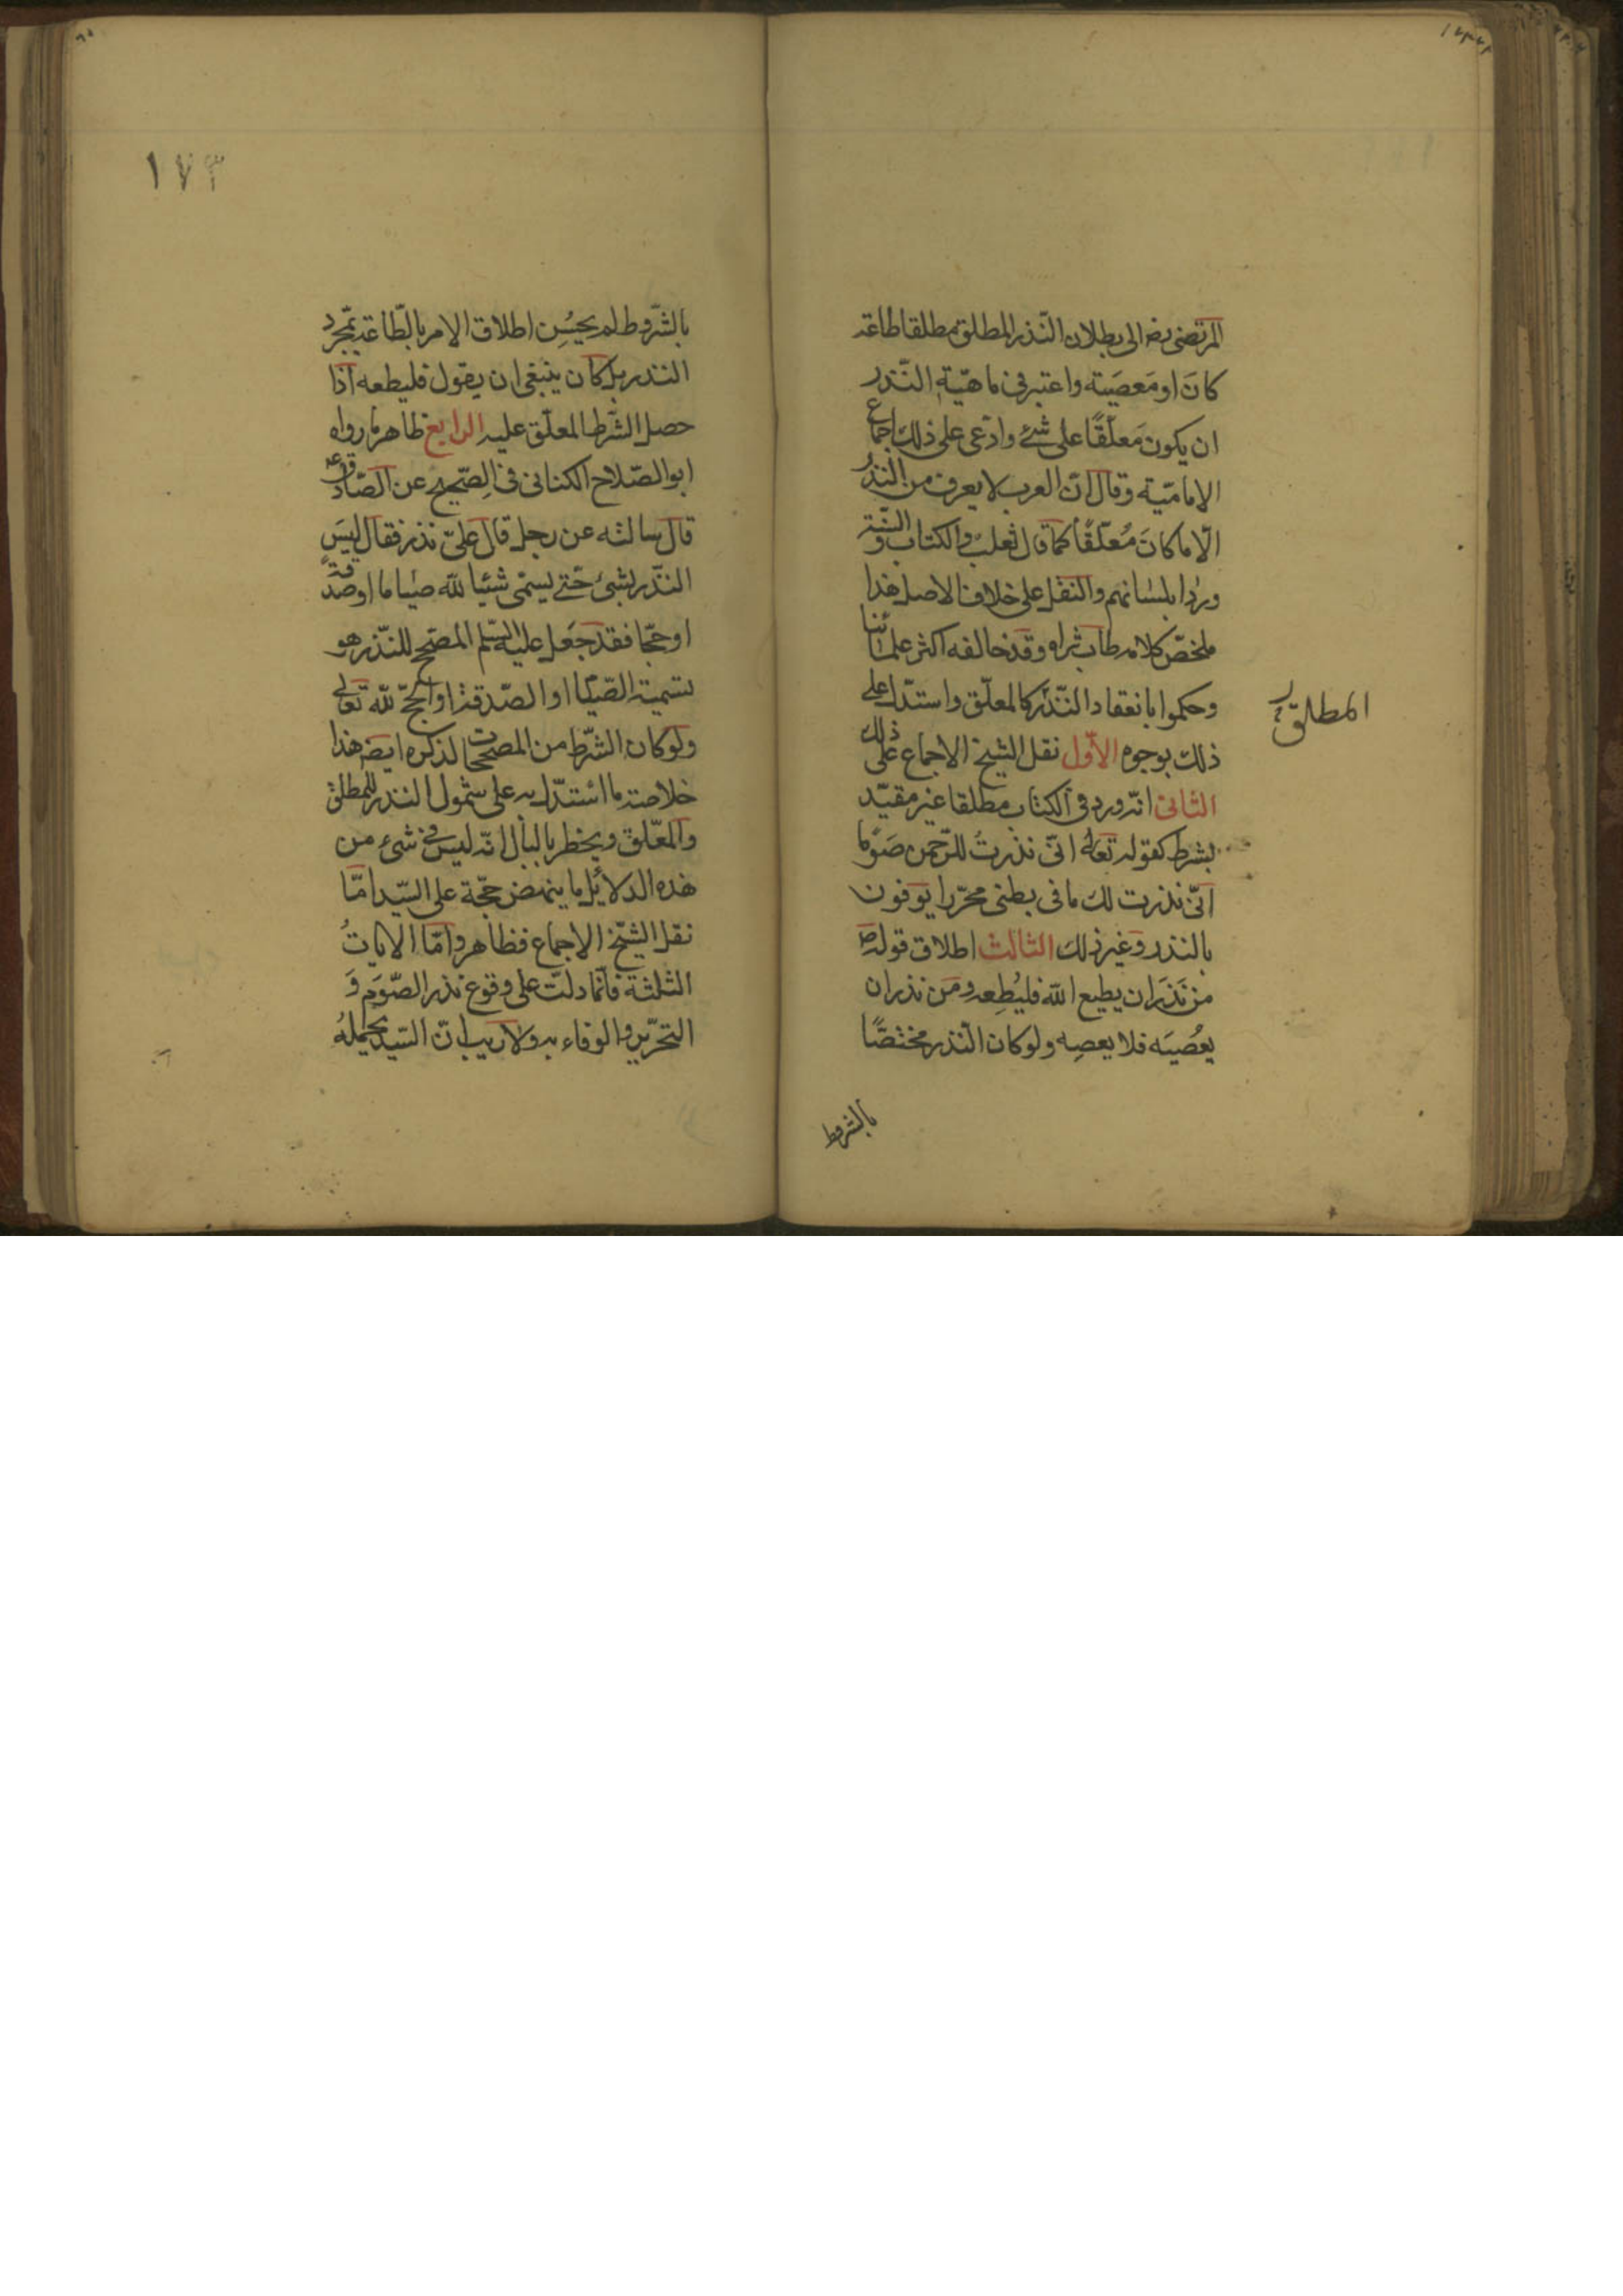 المرتضى رضه الى بطلان النّذر المطلق مطلقا طاعة
كانَ او مَعصَيته واعتبر فى ماهيّة النّذر
ان يكون مَعلّقًا على شئ وادّعى على ذلك اجماع
الإماميّة وقال انّ العرب لا يعرف من النّذر
الّا ما كانَ مُعلّقًا كما قال ثعلب والكتاب والسّنّة
وردا بلسانهم والنقل على خلاف الاصل هذا
ملخصّ كلامه طاب ثراه وقد خالفه اكثر علمائنا
وحكموا بانعقاد النّذر كالمعلّق واستدلّ على
المطلق
ذلك بوجوه الأوّل نقل الشيخ الاجماع على ذلك
الثانى انّه ورد فى الكتاب مطلقا غير مقيّد
بشرط كقوله تعالى انّى نذرتُ للرّحمن صَوْما
انّى نذرت لك ما فى بطنى محرّرا يوفون
بالنذر وغير ذلك الثالث اطلاق قوله ص
من نَذَرَ ان يطيع الله فليُطِعه ومَن نذر ان
يعُصيَه فلا يعصِه ولو كان النّذر مختصًّا
بالشروط
١٧٣
بالشّروط لم يحسُن اطلاق الامر بالطّاعة بمجرّد
النذر بل كان ينبغى ان يقول فليطعه اذا
حصل الشّرط المعلّق عليه الرابع ظاهر ما رواه
ابو الصّلاح الكنانى فى الصّحيح عن الصّادق ع
قال سالته عن رجل قال علىّ نذر فقال ليسَ
النّذر بشئ حتّى يسمّى شيئا لله صياما او صدقة
او حجّا فقد جَعل عليه السّلم المصحّح للنّذر هو
تسمية الصّيام او الصّدقة او الحجّ لله تعالى
ولو كان الشّرط من المصحّحات لذكره ايضا هذا
خلاصة ما استدلّ به على شمول النذر للمطلق
والمعّلق ويخطر بالبال انّه ليس فى شئ من
هذه الدلائل ما ينهض حجّة على السّيد امّا
نقل الشّيخ الاجماع فظاهر وامّا الايات
الثلثة فانّما دلّت على وقوع نذر الصّوم و
التحرير والوفاء به ولا ريب انّ السّيد يحمله